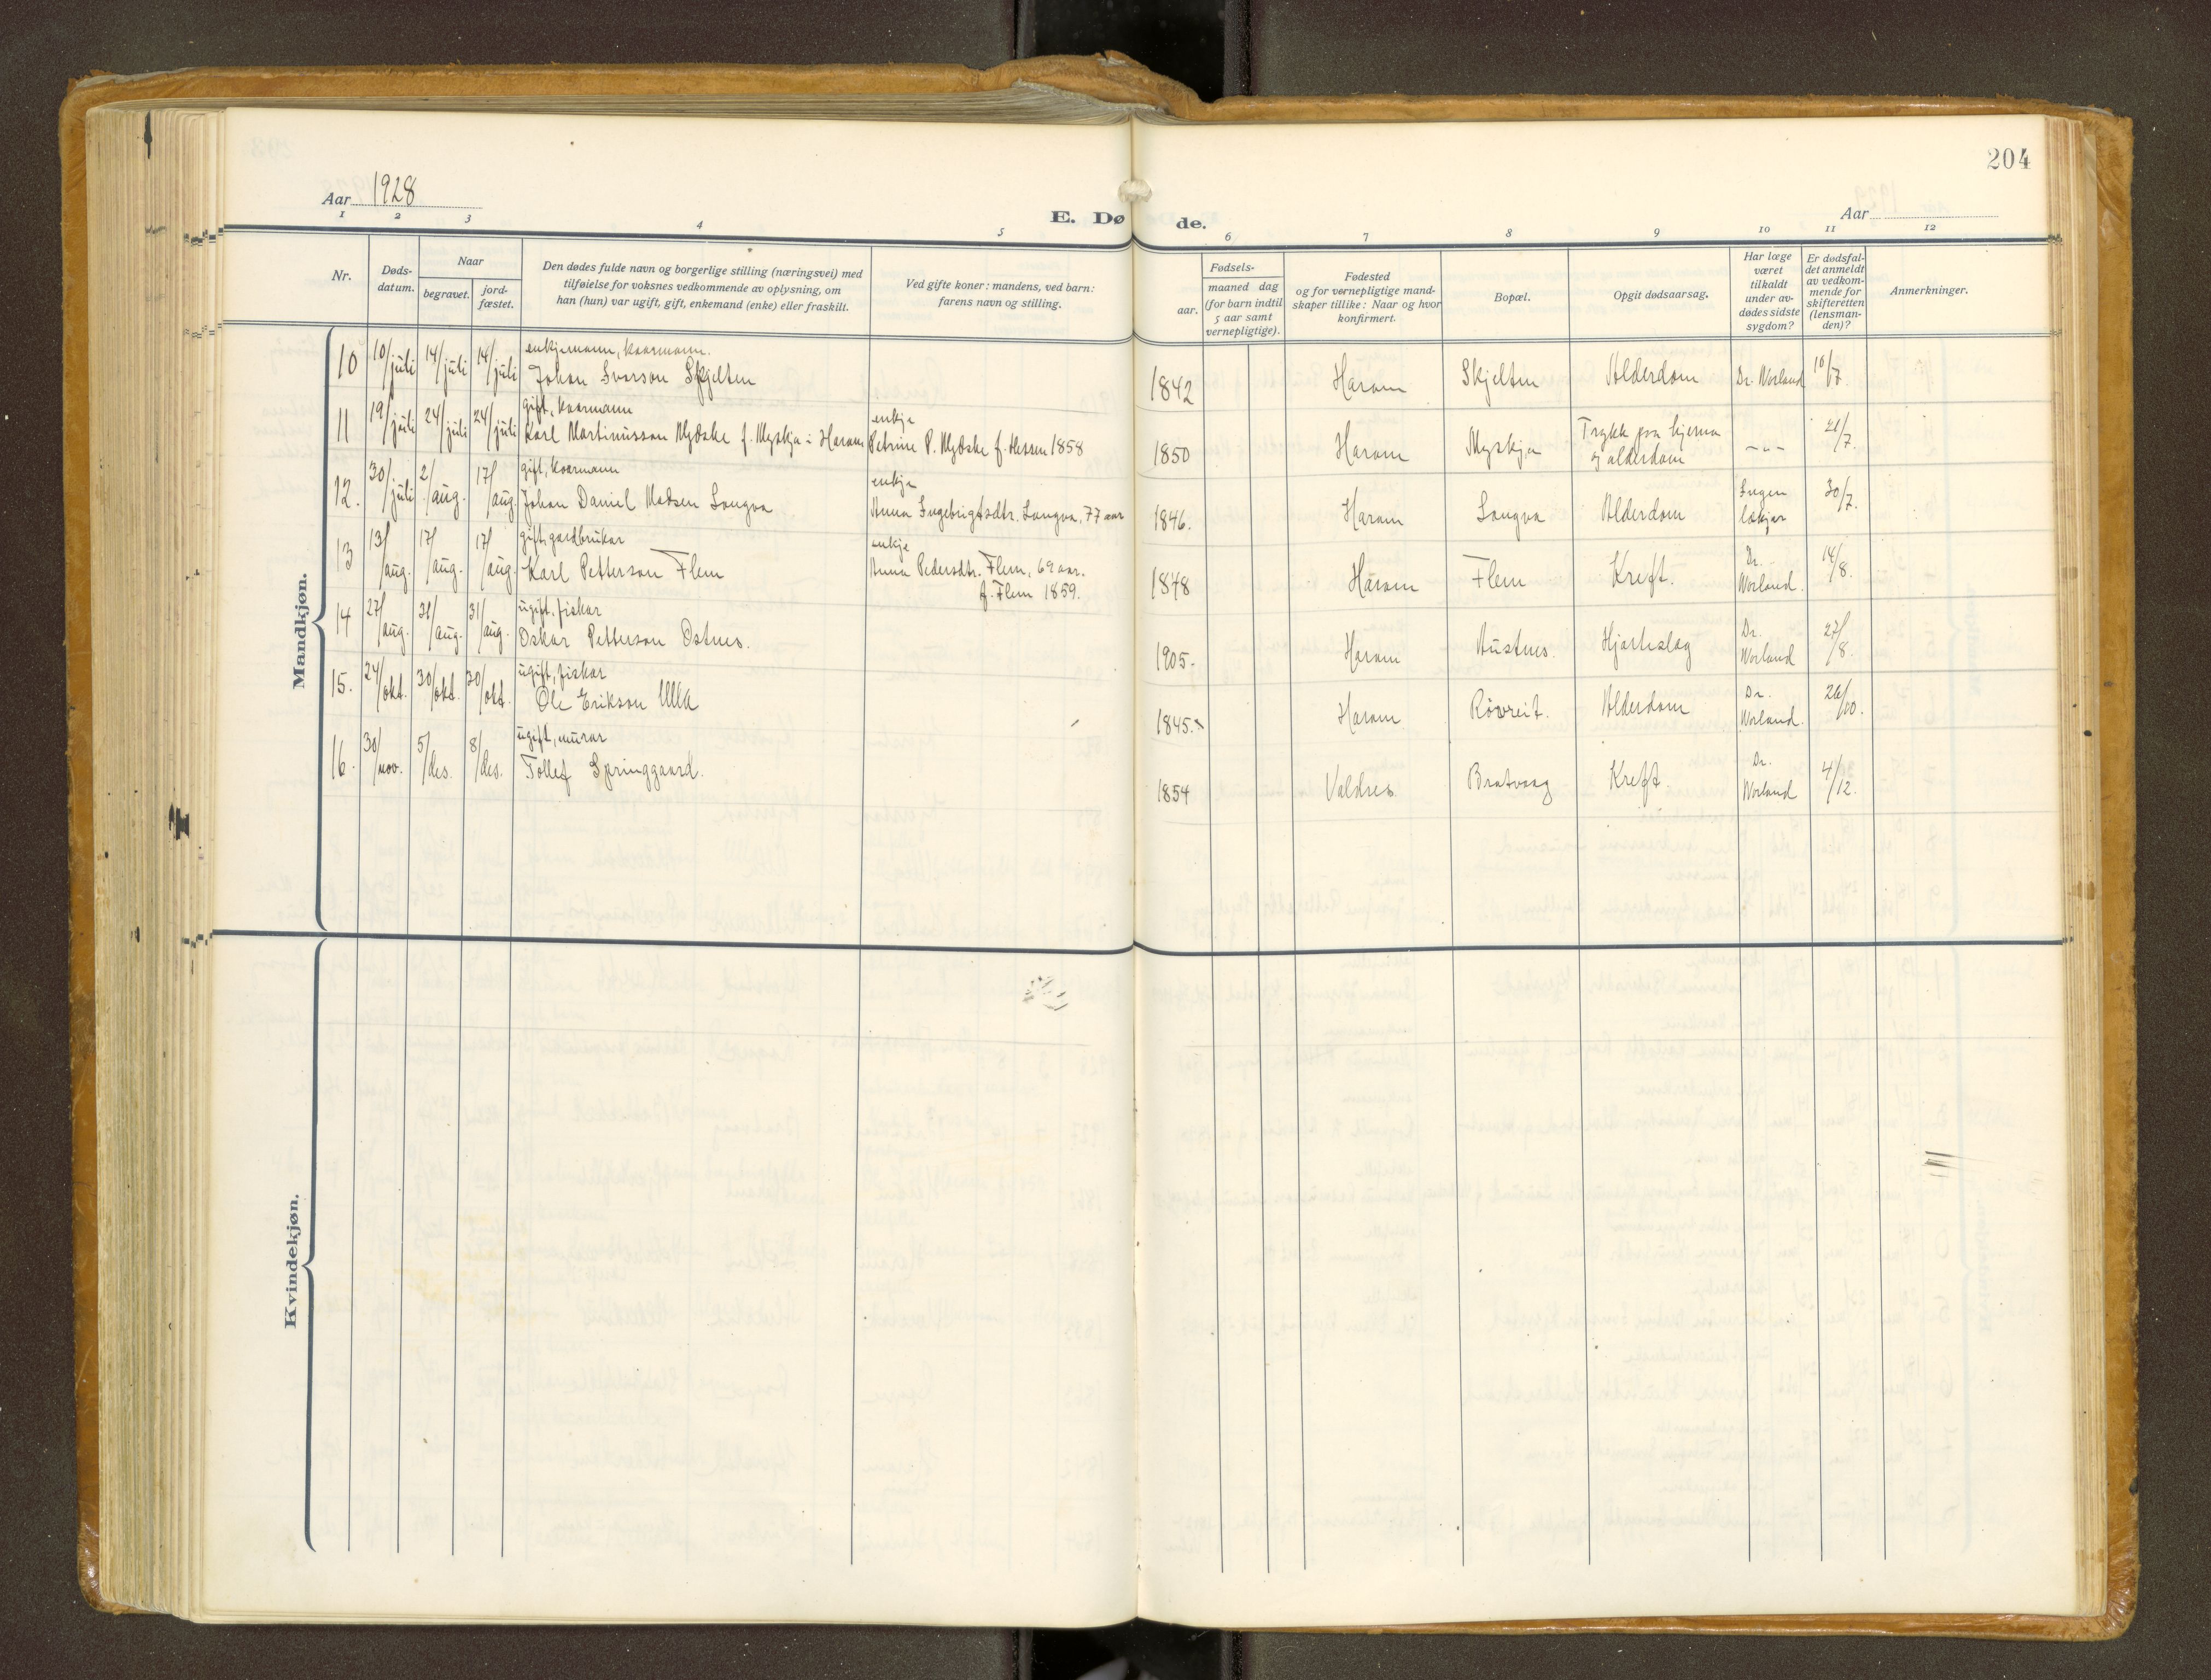 204
Aar 1928
Aar
E. Døde.
1 2 3 4 5 6 7 8 9 10 11 12
Nr.
Døds-
datum.
Naar
begravet.
jord-
fæstet.
Den dødes fulde navn og borgerlige stilling (næringsvei) med
tilføielse for voksnes vedkommende av oplysning, om
han (hun) var ugift, gift, enkemand (enke) eller fraskilt.
Ved gifte koner: mandens, ved barn:
farens navn og stilling.
Fødsels-
aar.
maaned dag
(for barn indtil
5 aar samt
vernepligtige).
Fødested
og for vernepligtige mand-
skaper tillike: Naar og hvor
konfirmert.
Bopæl.
Opgit dødsaarsag.
Har læge
været
tilkaldt
under av-
dødes sidste
sygdom?
Er dødsfal-
det anmeldt
av vedkom-
mende for
skifteretten
(lensman-
den)?
Anmerkninger.
Mandkjøn.
10 10/juli 14/juli 14/juli
enkjemann, kaarmann.
Johan Ivarson Skjelten
1842 Haram Skjelten Alderdom Dr. Worland 10/7.
11 19/juli 24/juli 24/juli
gift, kaarmann
Karl Martinusson Myðske f. Myskja i Haram
enkje
Petrine P. Myðske f. Hessen 1858
1850 Haram Myskja
Trykk paa hjerna
og alderdom
-"- 21/7.
12. 30/juli 2/aug. 17/aug.
gift, kaarmann
Johan Daniel Madsen Longva
enkje
Anna Ingebrigtsdtr. Longva, 77 aar
1846. Haram Longva Alderdom
Ingen
lækjar
30/7.
13 13/aug. 17/aug. 17/aug.
gift, gardbrukar
Karl Petterson Flem
enkje
Anna Pedersdtr. Flem, 69 aar.
f. Flem 1859.
1848 Haram Flem Kreft.
Dr.
Worland.
14/8.
14 27/aug. 31/aug. 31/aug.
ugift, fiskar
Oskar Petterson Ostnes.
1905. Haram Austnes. Hjarteslag
Dr.
Worland
27/8.
15. 24/okt. 30/okt. 30/okt.
ugift, fiskar
Ole Erikson Ulla
1845. Haram Røvreit. Alderdom
Dr.
Worland.
26/10.
16. 30/nov. 5/des. 8/des.
ugift, murar
Tollef Springgaard.
1854 Valdres Bratvaag Kreft.
Dr.
Worland
4/12.
Kvindekjøn.